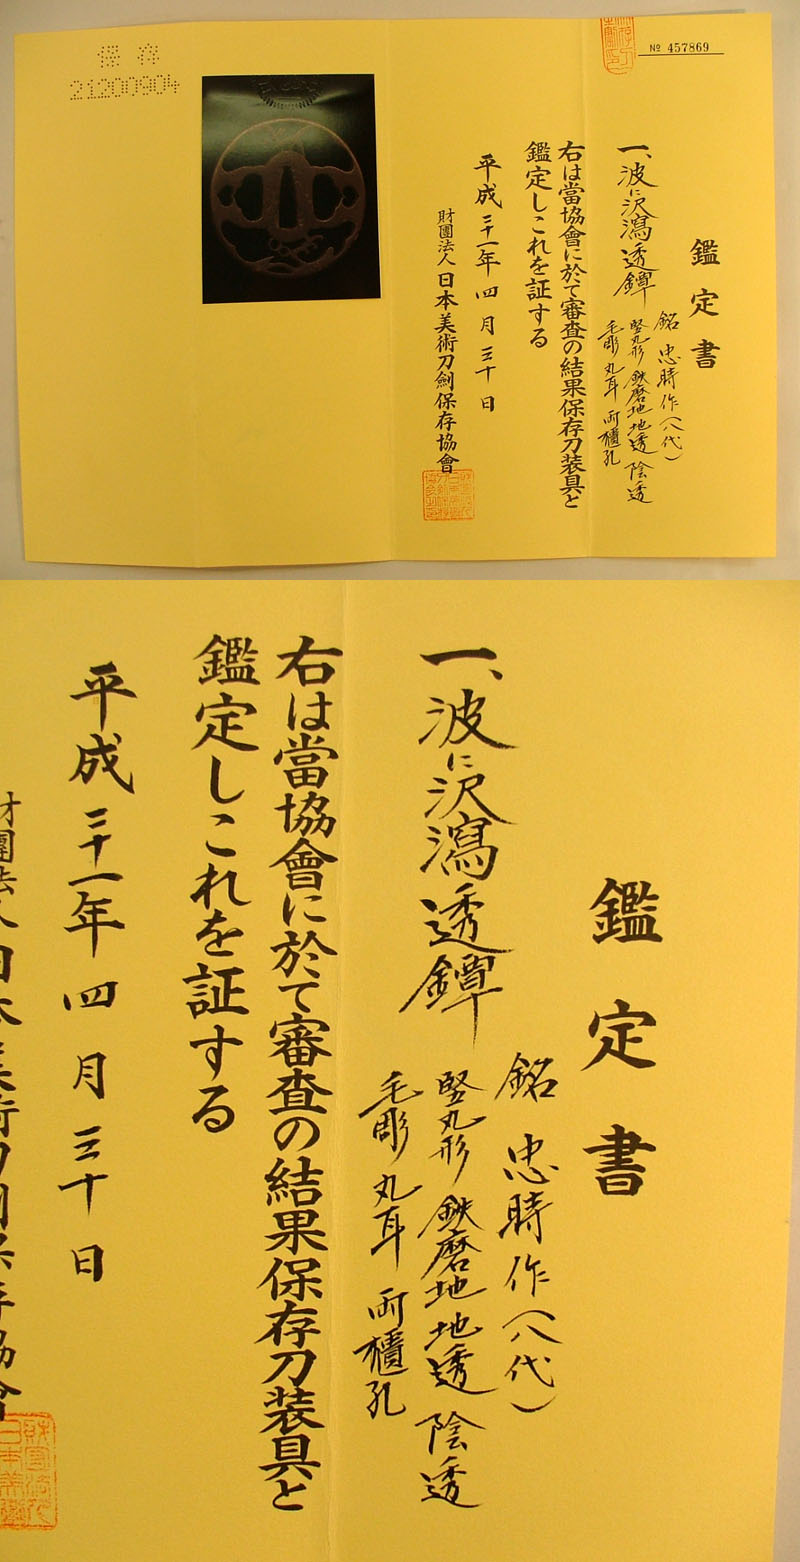 保存
21200904
№ 457869
鑑定書
一、波に沢瀉透鐔
銘 忠時作(八代)
竪丸形 鉄磨地 地透 陰透
毛彫 丸耳 両櫃孔
右は當協會に於て審査の結果保存刀装具と
鑑定しこれを証する
平成二十一年四月三十日
財團法人 日本美術刀劍保存協會
鑑定書
一、波に沢瀉透鐔
銘 忠時作(八代)
竪丸形 鉄磨地 地透 陰透
毛彫 丸耳 両櫃孔
右は當協會に於て審査の結果保存刀装具と
鑑定しこれを証する
平成二十一年四月三十日
財團法人 日本美術刀劍保存協會